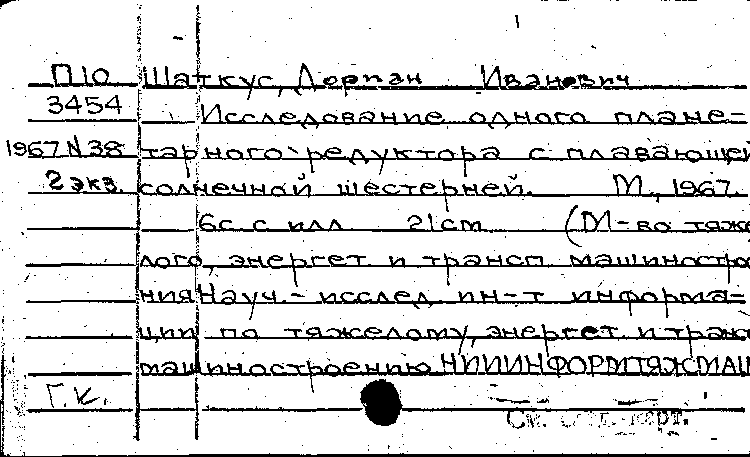 П10 Шаткус, Дорпан Иванович
3454 Исследование одного плане-
1967 N 38 тарного редуктора с плавающей
2 экз. солнечной шестерней. М., 1967.
6с. с илл 21cm (М-во тяже
лого, энергет и трансп. машиностро
ния Науч.- исслед. ин-т информа-
ции по тяжелому, энергет. и транс
машиностроению НИИИНФОРМТЯЖМАШ
Г.К.
См. карт.